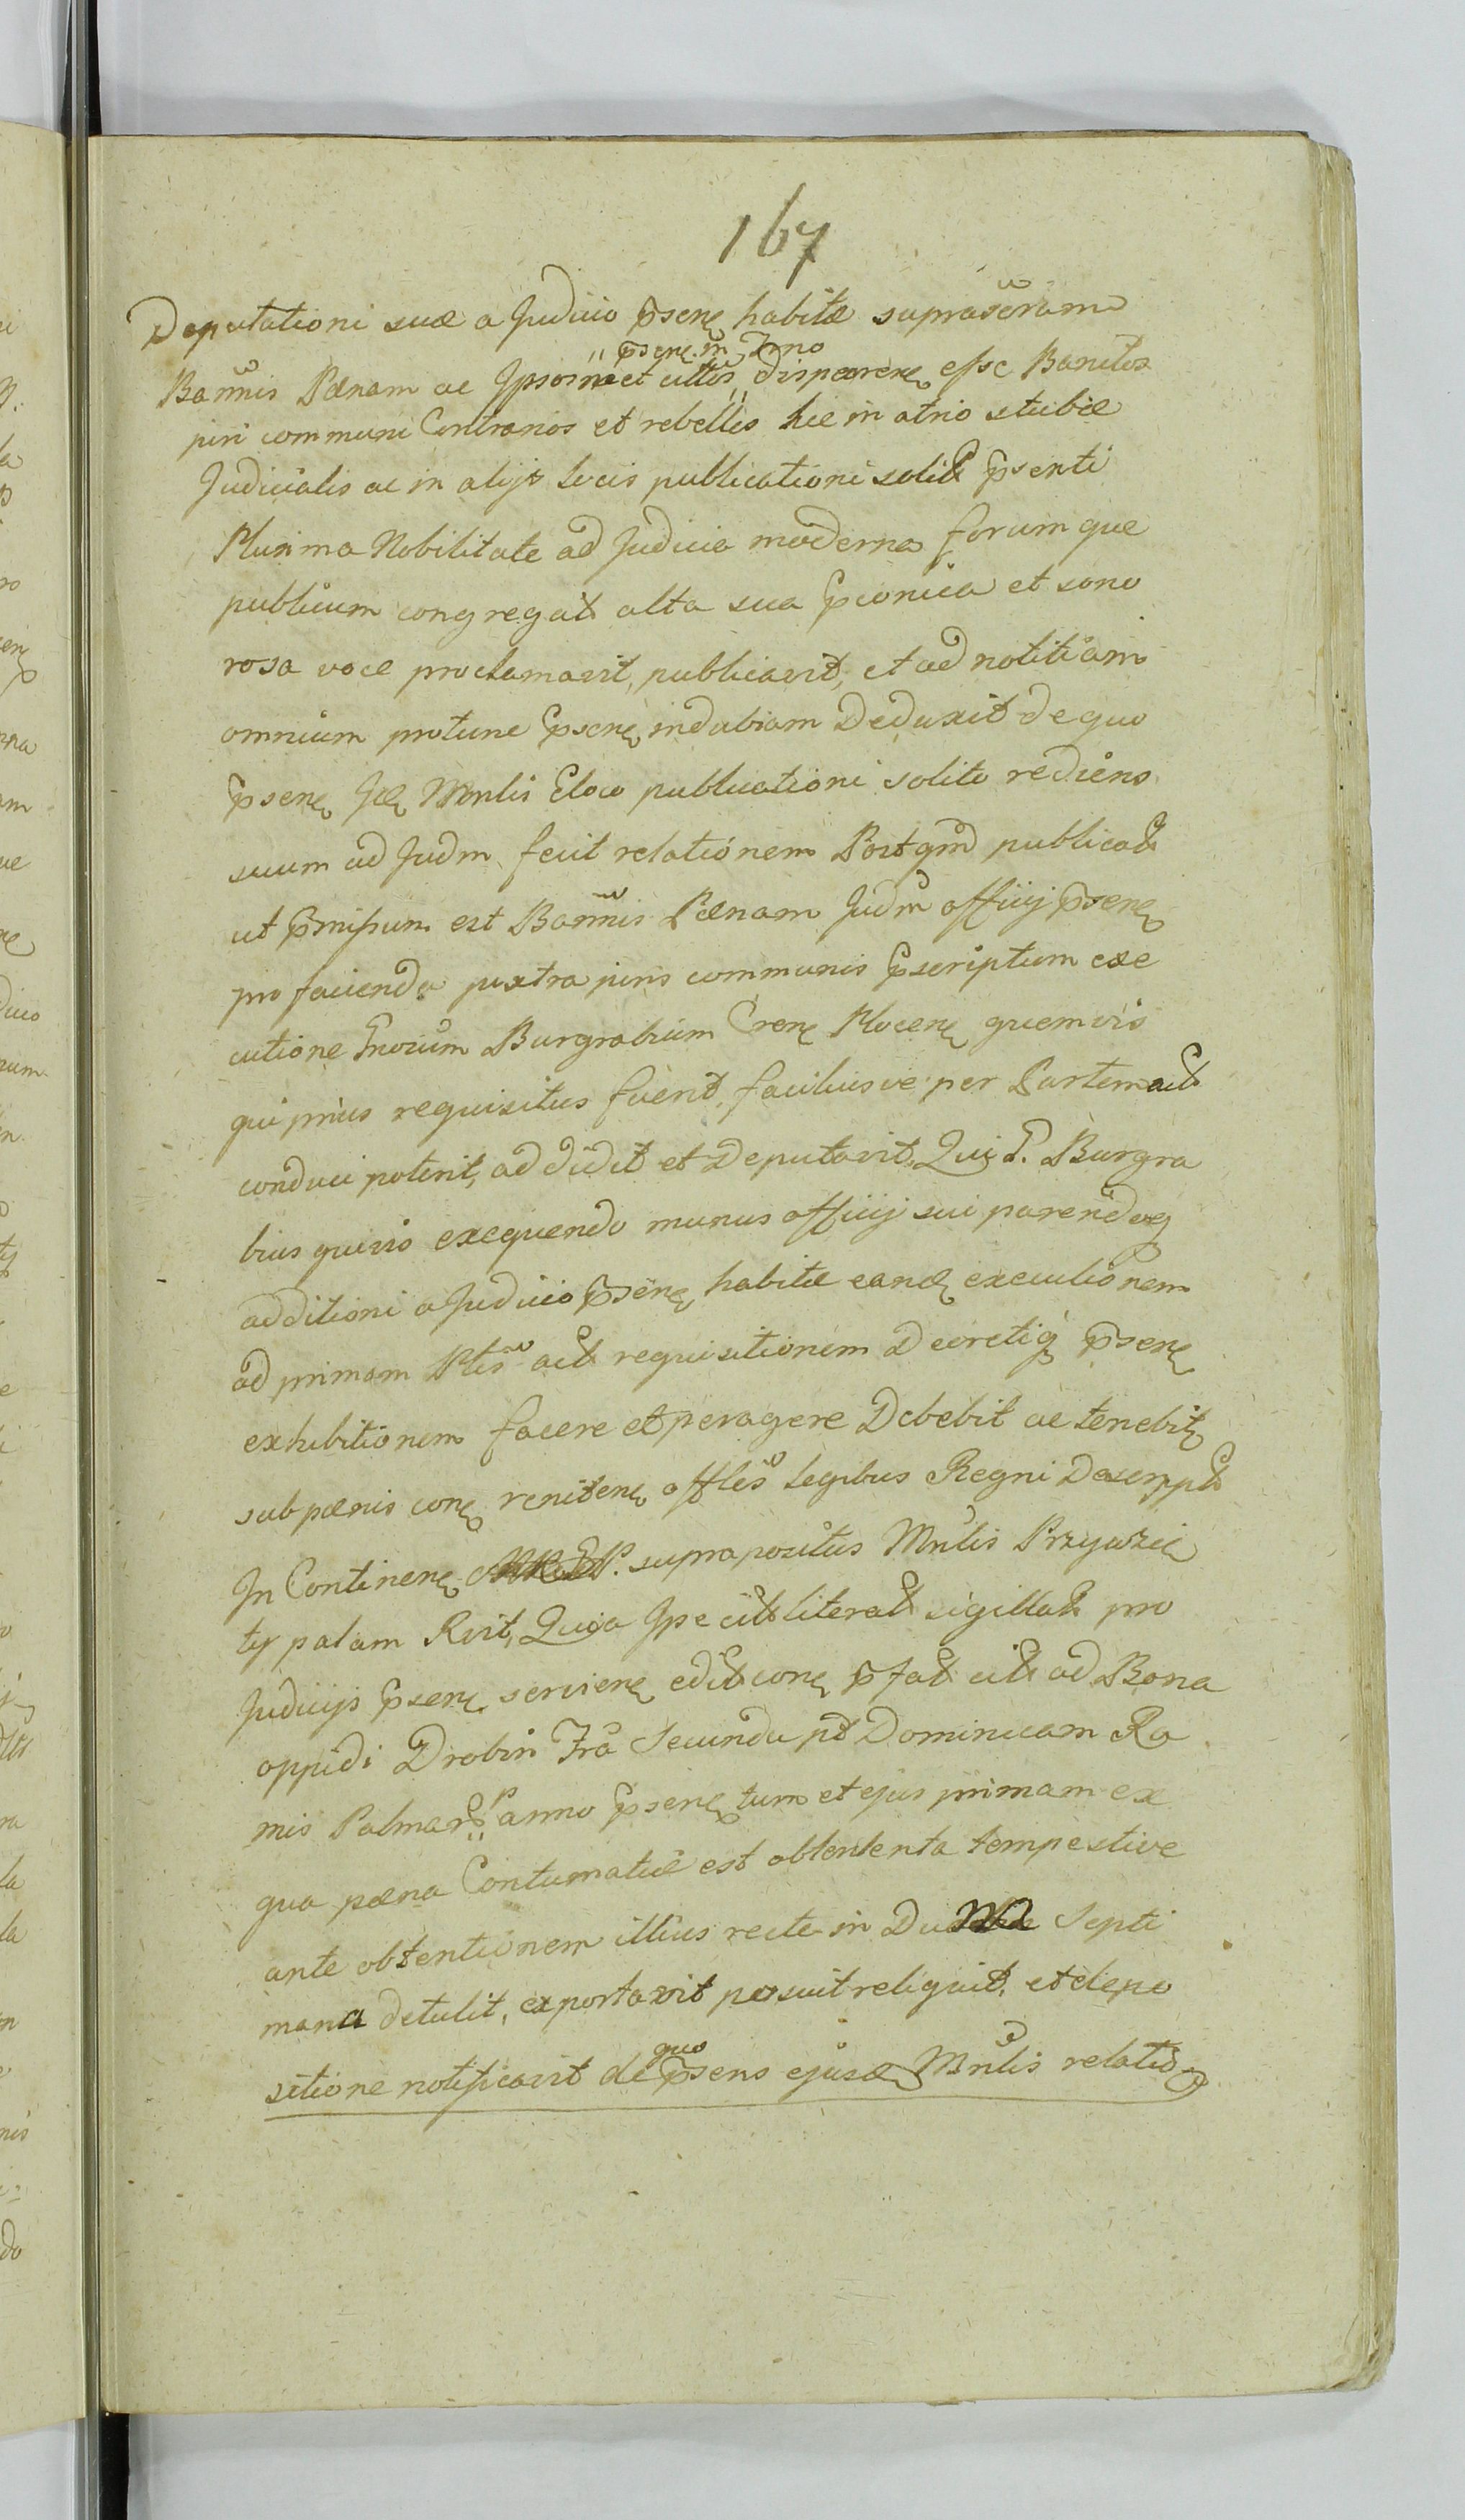 167
Deputationi suæ a Judicio p̄senę habitæ suprascram
Bannis Pænam ac Ipsosmet cittos „p̄senę in Trno„ disparenę esse Banitos
juri communi Contrarios et rebelles hic in atrio stubæ
Judicialis ac in alijs locis publicationi solit p̄senti
Plurima Nobilitate ad Judicia moderna forumque
publicum congregat alta sua p̄conica et sono
rosa voce proclamavit, publicavit, et ad notitiam
omnium protunc p̄senę indubiam Deduxit de quo
p̄senę Mnlis Eloco publicationi solito rediens
suum ad Judm fecit relationem Postqm publicat
ut p̄missum est Bannis Pænam Judm officij p̄senę
pro facienda juxtra juris communis p̄scriptum exe
cutione Gnosum Burgrabium Crenę Plocenę quemvis
qui prius requisitus fuerit, faciliusve per Partem act
conduci poterit, addidit et Deputavit, Qui G. Burgra
bius quivis exequendo munus officij sui parendoq
additioni a Judicio p̄senę habitæ eandę executionem
ad primam Ptis act requisitionem Decretiq p̄senę
exhibitionem facere et peragere Debebit ac tenebitę
sub pænis conę renitenę offles legibus Regni Descrppt
In Continenę suprapositus Mnlis Przywzie
ty palam Rvit, Quia Ipe cit literat sigillat pro
Judicijs p̄senę servienę edit conę p̄fat cit ad Bona
oppidi Drobin Fra Secunda pt Dominicam Ra
mis Palmar anno p̄senę tum et ejus primam ex
qua pæna Contumatiæ est obtententa tempestive
ante obtentionem illius recte in Du Septi
mana detulit, exportavit posuit reliquit, et depo
sitione notificavit de quo p̄sens ejusdę Mnlis relatio